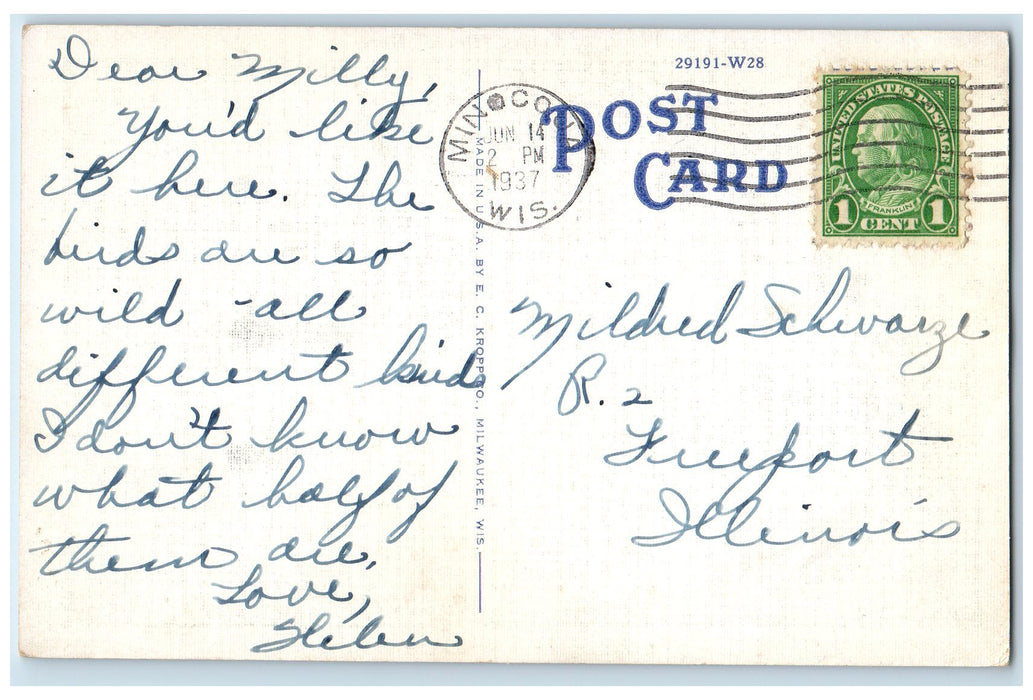 Dear Milly,
You'd like
it here. The
birds are so
wild - all
different kinds
I don't know
what half of
them are.
Love,
Helen
MADE IN U.S.A. BY E. C. KROPP CO., MILWAUKEE, WIS.
29191-W28
POST
CARD
MINOCQUA
JUN 14
2 PM
1937
WIS.
UNITED STATES POSTAGE
FRANKLIN
1 CENT 1
Mildred Schwarze
R. 2
Freeport
Illinois